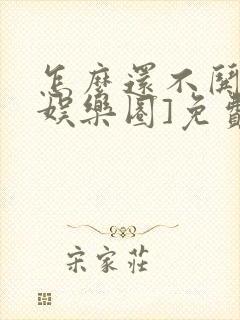 怎麼還不開
娛樂圈]免費
宋家莊